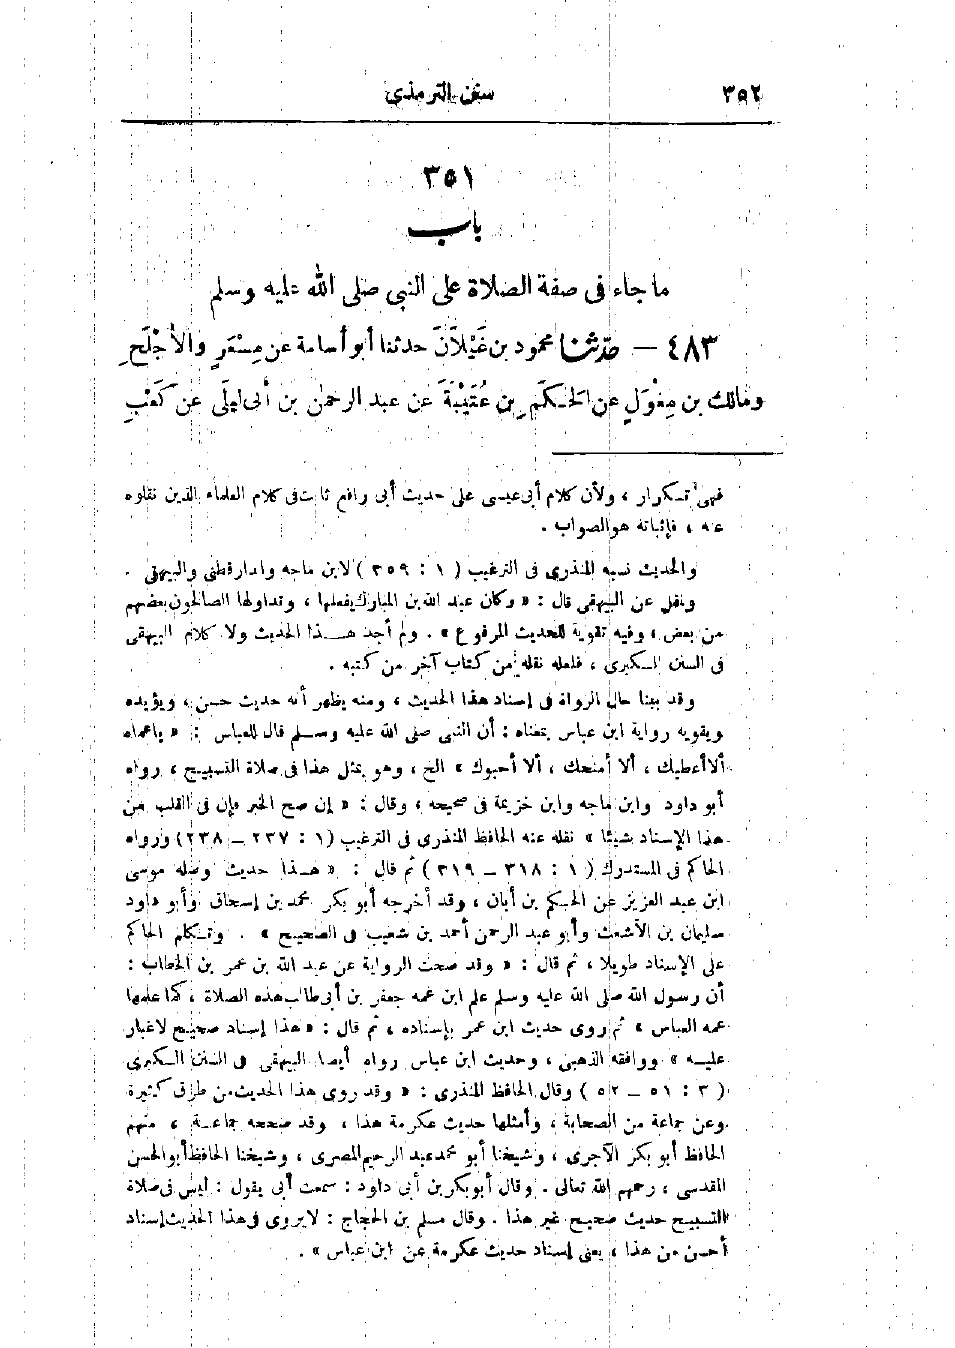 ٣٥٢
سنن الترمذى
٣٥١
باب
ما جاء فى صفة الصلاة على النبى صلى الله عليه وسلم
٤٨٣ — حدّثنا محمود بن غَيْلاَنَ حدثنا أبو أسامة عن مِسْعَرٍ والأَجْلَحِ
ومالك بن مِغْوَلٍ عن الحَكَمِ بن عُتَيْبَةَ عن عبد الرحمن بن أبى ليلَى عن كَعْبِ
تكرار ، ولأن كلام أبى عيسى على حديث أبى رافع ثابت فى كلام العلماء الذين نقلوه
عنه ، فإثباته هو الصواب .
والحديث نسبه المنذرى فى الترغيب ( ١ : ٣٥٩ ) لابن ماجه والدارقطنى والبيهقى .
ونقل عن البيهقى قال : « وكان عبد الله بن المبارك يفعلها ، وتداولها الصالحون بعضهم
من بعض ، وفيه تقوية للحديث المرفوع » . ولم أجد هـــذا الحديث ولا كلام البيهقى
فى السنن الكبرى ، فلعله نقله من كتاب آخر من كتبه .
وقد بينا حال الرواة فى إسناد هذا الحديث ، ومنه يظهر أنه حديث حسن ، ويؤيده
ويقويه رواية ابن عباس بمعناه : أن النبى صلى الله عليه وســلم قال للعباس : « يا عماه
ألا أعطيك ، ألا أمنحك ، ألا أحبوك » الخ ، وهو بمثل هذا فى صلاة التسبيح ، رواه
أبو داود وابن ماجه وابن خزيمة فى صحيحه ، وقال : « إن صح الخبر فإن فى القلب من
هذا الإسناد شيئا » نقله عنه الحافظ المنذرى فى الترغيب ( ١ : ٢٣٧ – ٢٣٨ ) ورواه
الحاكم فى المستدرك ( ١ : ٣١٨ – ٣١٩ ) ثم قال : « هــذا حديث وصله موسى
ابن عبد العزيز عن الحكم بن أبان ، وقد أخرجه أبو بكر محمد بن إسحاق وأبو داود
سليمان بن الأشعث وأبو عبد الرحمن أحمد بن شعيب فى الصحيح » . وتكلم الحاكم
على الإسناد طويلا ، ثم قال : « وقد صحت الرواية عن عبد الله بن عمر بن الخطاب :
أن رسول الله صلى الله عليه وسلم علم ابن عمه جعفر بن أبى طالب هذه الصلاة ، كما علمها
عمه العباس » ثم روى حديث ابن عمر بإسناده ، ثم قال : « هذا إسناد صحيح لا غبار
عليــه » ووافقه الذهبى ، وحديث ابن عباس رواه أيضا البيهقى فى السنن الكبرى
( ٣ : ٥١ – ٥٢ ) وقال الحافظ المنذرى : « وقد روى هذا الحديث من طرق كثيرة
وعن جماعة من الصحابة ، وأمثلها حديث عكرمة هذا ، وقد صححه جماعــة ، منهم
الحافظ أبو بكر الآجرى ، وشيخنا أبو محمد عبد الرحيم المصرى ، وشيخنا الحافظ أبو الحسن
المقدسى ، رحمهم الله تعالى . وقال أبو بكر بن أبى داود : سمعت أبى يقول : ليس فى صلاة
التسبيح حديث صحيح غير هذا . وقال مسلم بن الحجاج : لا يروى فى هذا الحديث إسناد
أحسن من هذا ، يعنى إسناد حديث عكرمة عن ابن عباس » .